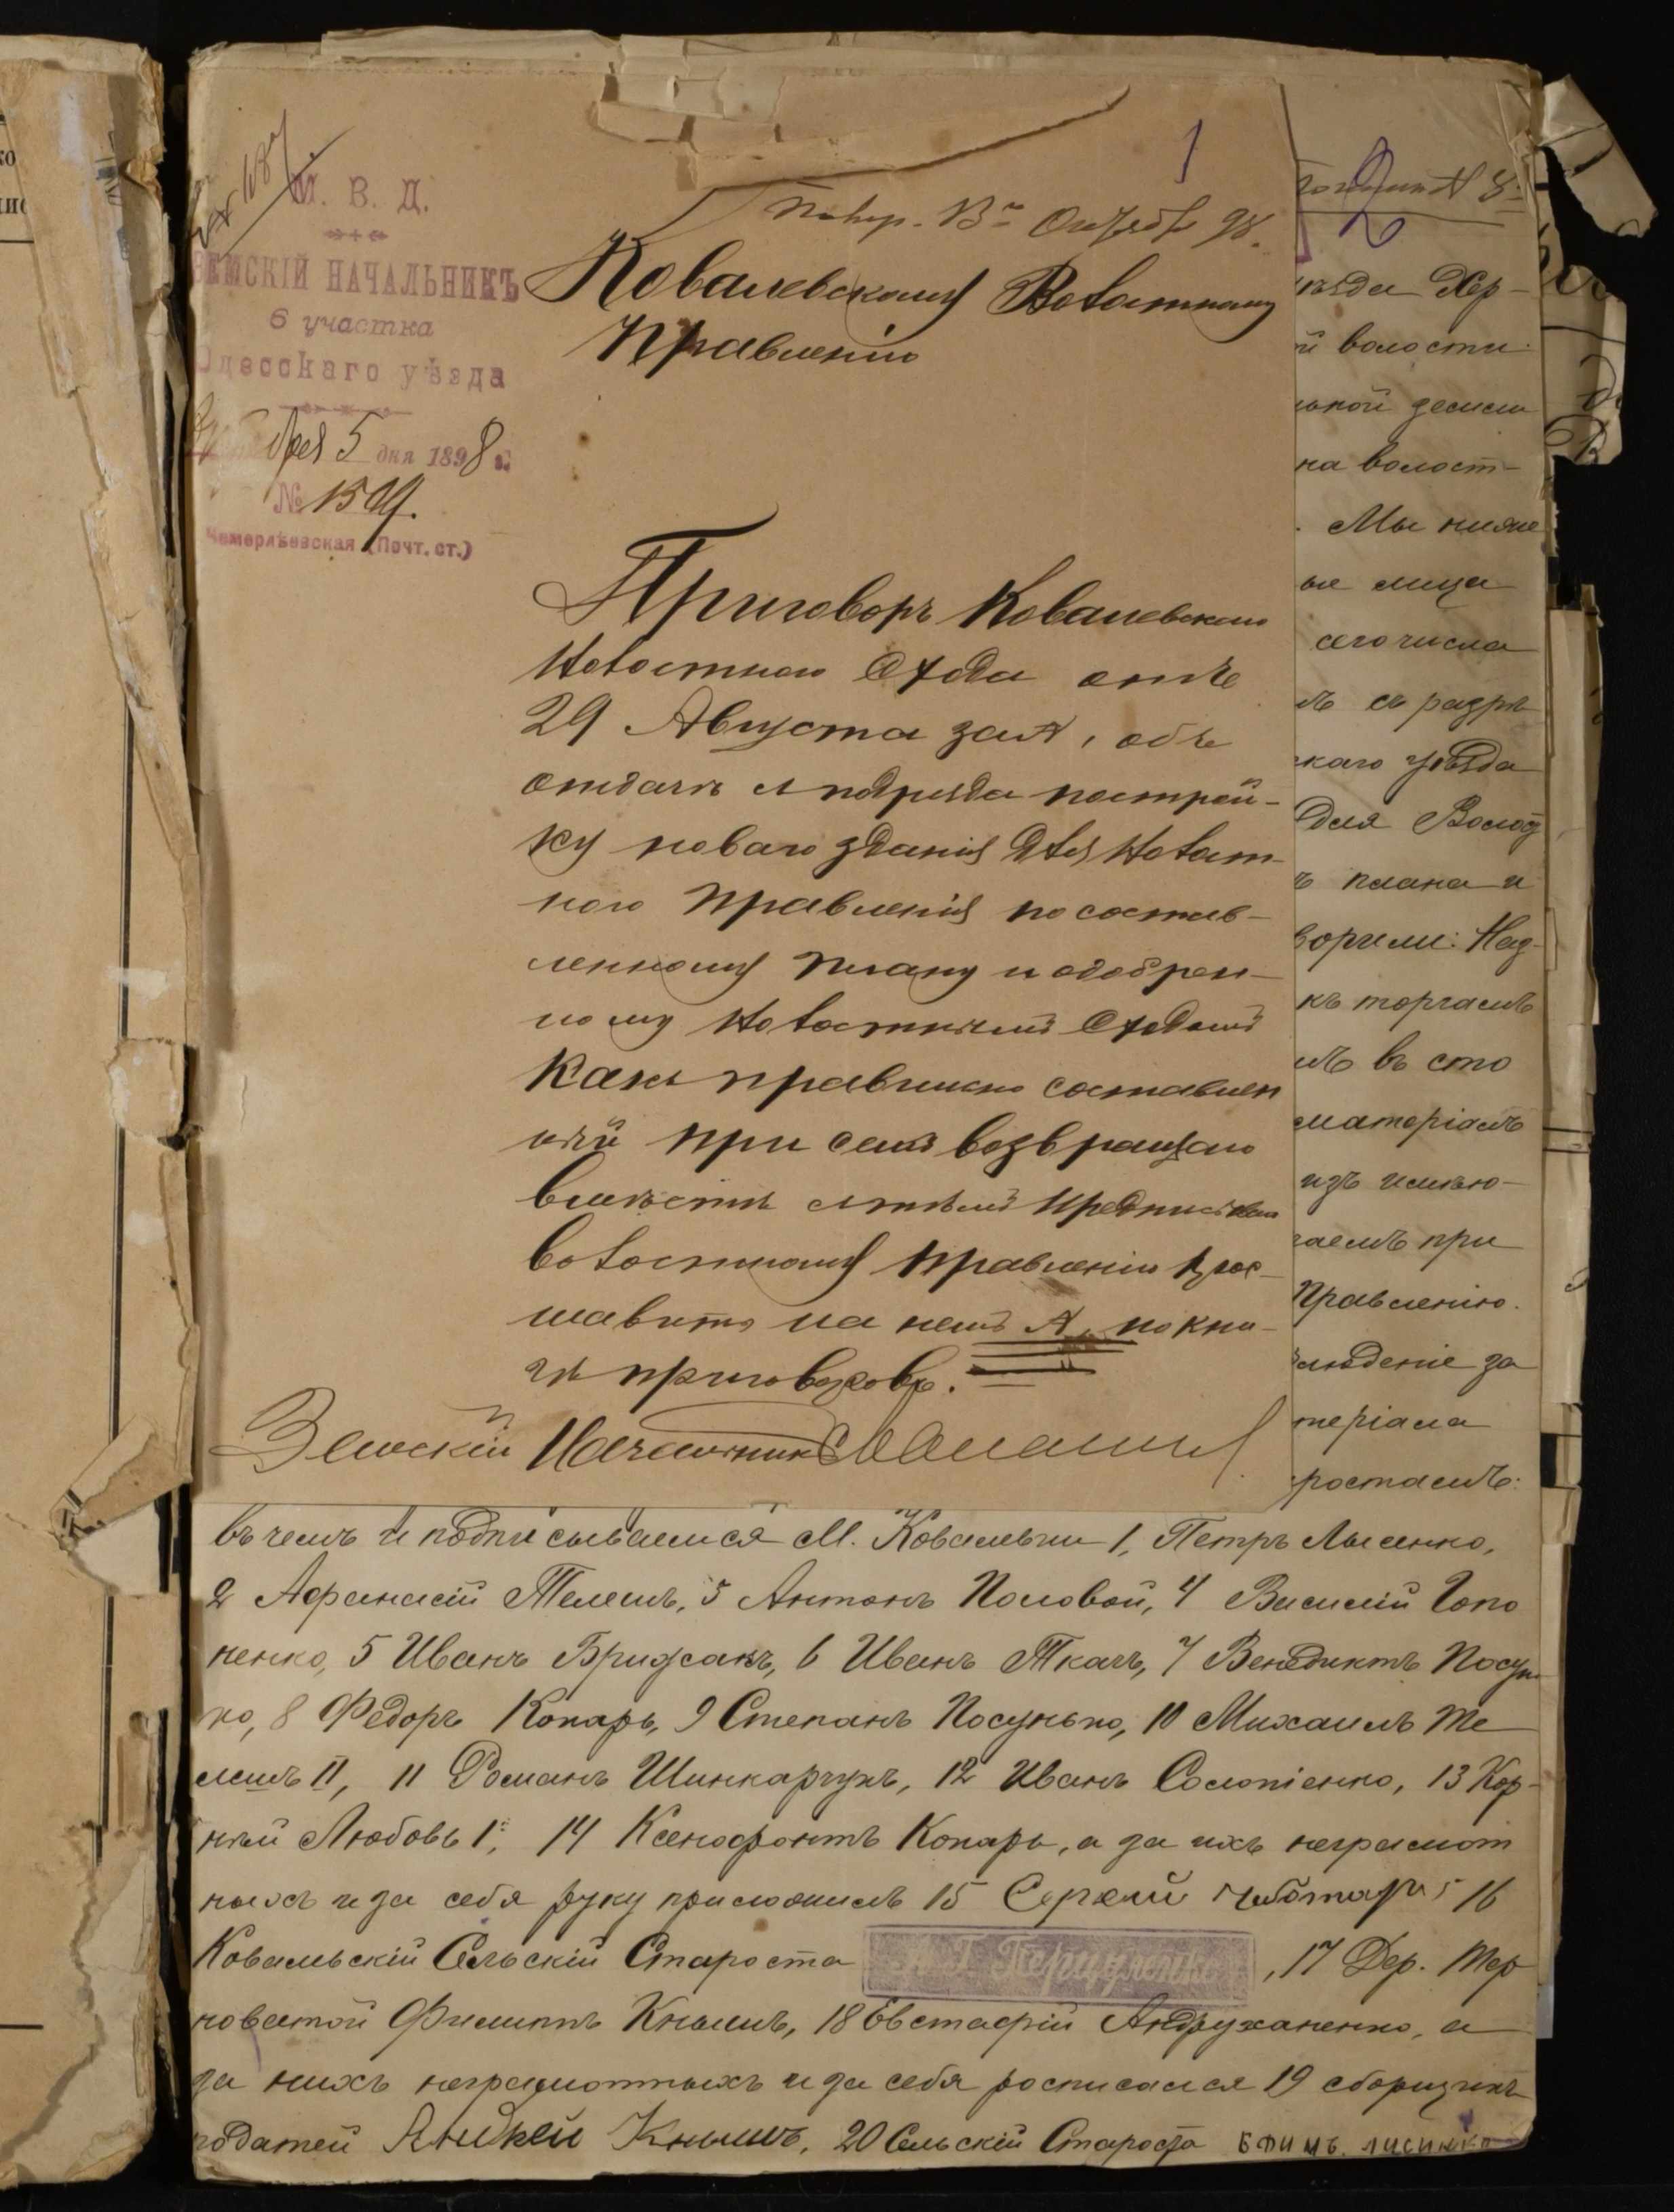 М. В. Д.
ЗЕМСКІЙ НАЧАЛЬНИКЪ
6 участка
Одесскаго уѣзда
5 дня 1898 г.
№
(Почт. ст.)
1
Ковалевскому Волостному
Правленію
Приговоръ Ковалевскаго
Волостного Схода отъ
29 Августа за №, объ
отдачѣ съ подряда построй-
ку новаго зданія для Волост-
ного Правленія по состав-
ленному плану и одобрен-
ному Волостнымъ Сходомъ
какъ правильно составлен
ный при семъ возвращаю
вмѣстѣ съ тѣмъ предписываю
Волостному Правленію
на немъ № по кни-
гѣ приговоровъ.
Земскій Начальникъ
2
уѣзда Хер-
й волости.
на волост-
. Мы ниже
ые лица
сего числа
съ разрѣ
скаго уѣзда
для Волос
ъ плана и
ворили: Наз-
къ торгамъ
въ сто
матеріалъ
изъ имѣю-
гаемъ при
Правленію.
блюденіе за
теріала
ростамъ:
въ чемъ и подписываемся М. Ковалевки 1, Петръ Лысенко,
2 Афанасій Телешъ, 3 Антонъ Половой, 4 Василій Гопо
ненко, 5 Иванъ Бриджакъ, 6 Иванъ Ткачъ, 7 Венедиктъ Посунь
ко, 8 Федоръ Копарь, 9 Степанъ Посунько, 10 Михаилъ Те
лешъ II, 11 Романъ Шинкарчукъ, 12 Иванъ Солопіенко, 13 Кор-
ній Любовь 1й, 14 Ксенофонтъ Копарь, а за ихъ неграмот
ныхъ и за себя руку приложилъ 15 Сергѣй Чоботарь 16
Ковальскій Сельскій Староста , 17 Дер. Тер
новатой Филиппъ Кнышъ, 18 Евстафій Андруханенко, а
за нихъ неграмотныхъ и за себя росписался 19 сборщикъ
податей Андрей Кнышъ, 20 Сельскій Староста